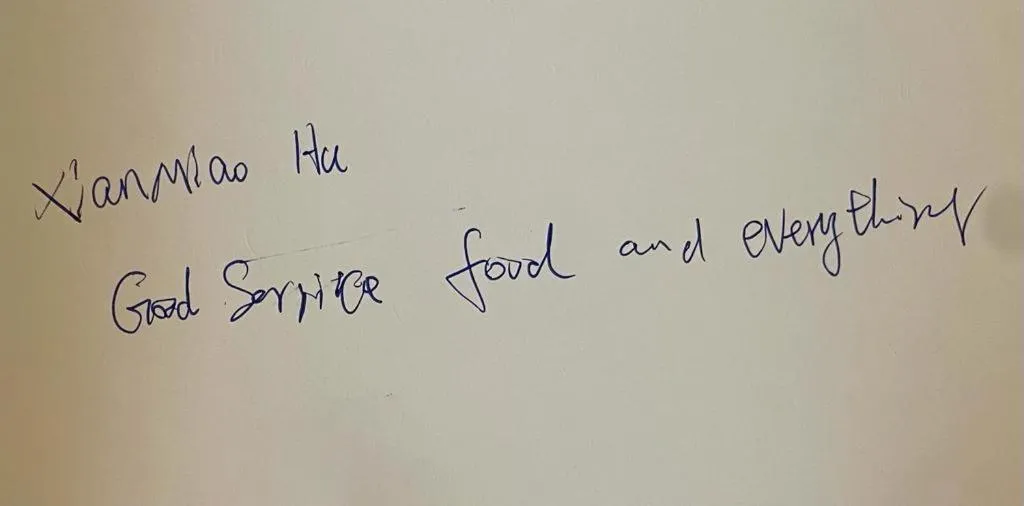 XianMiao Hu
Good Service food and everything